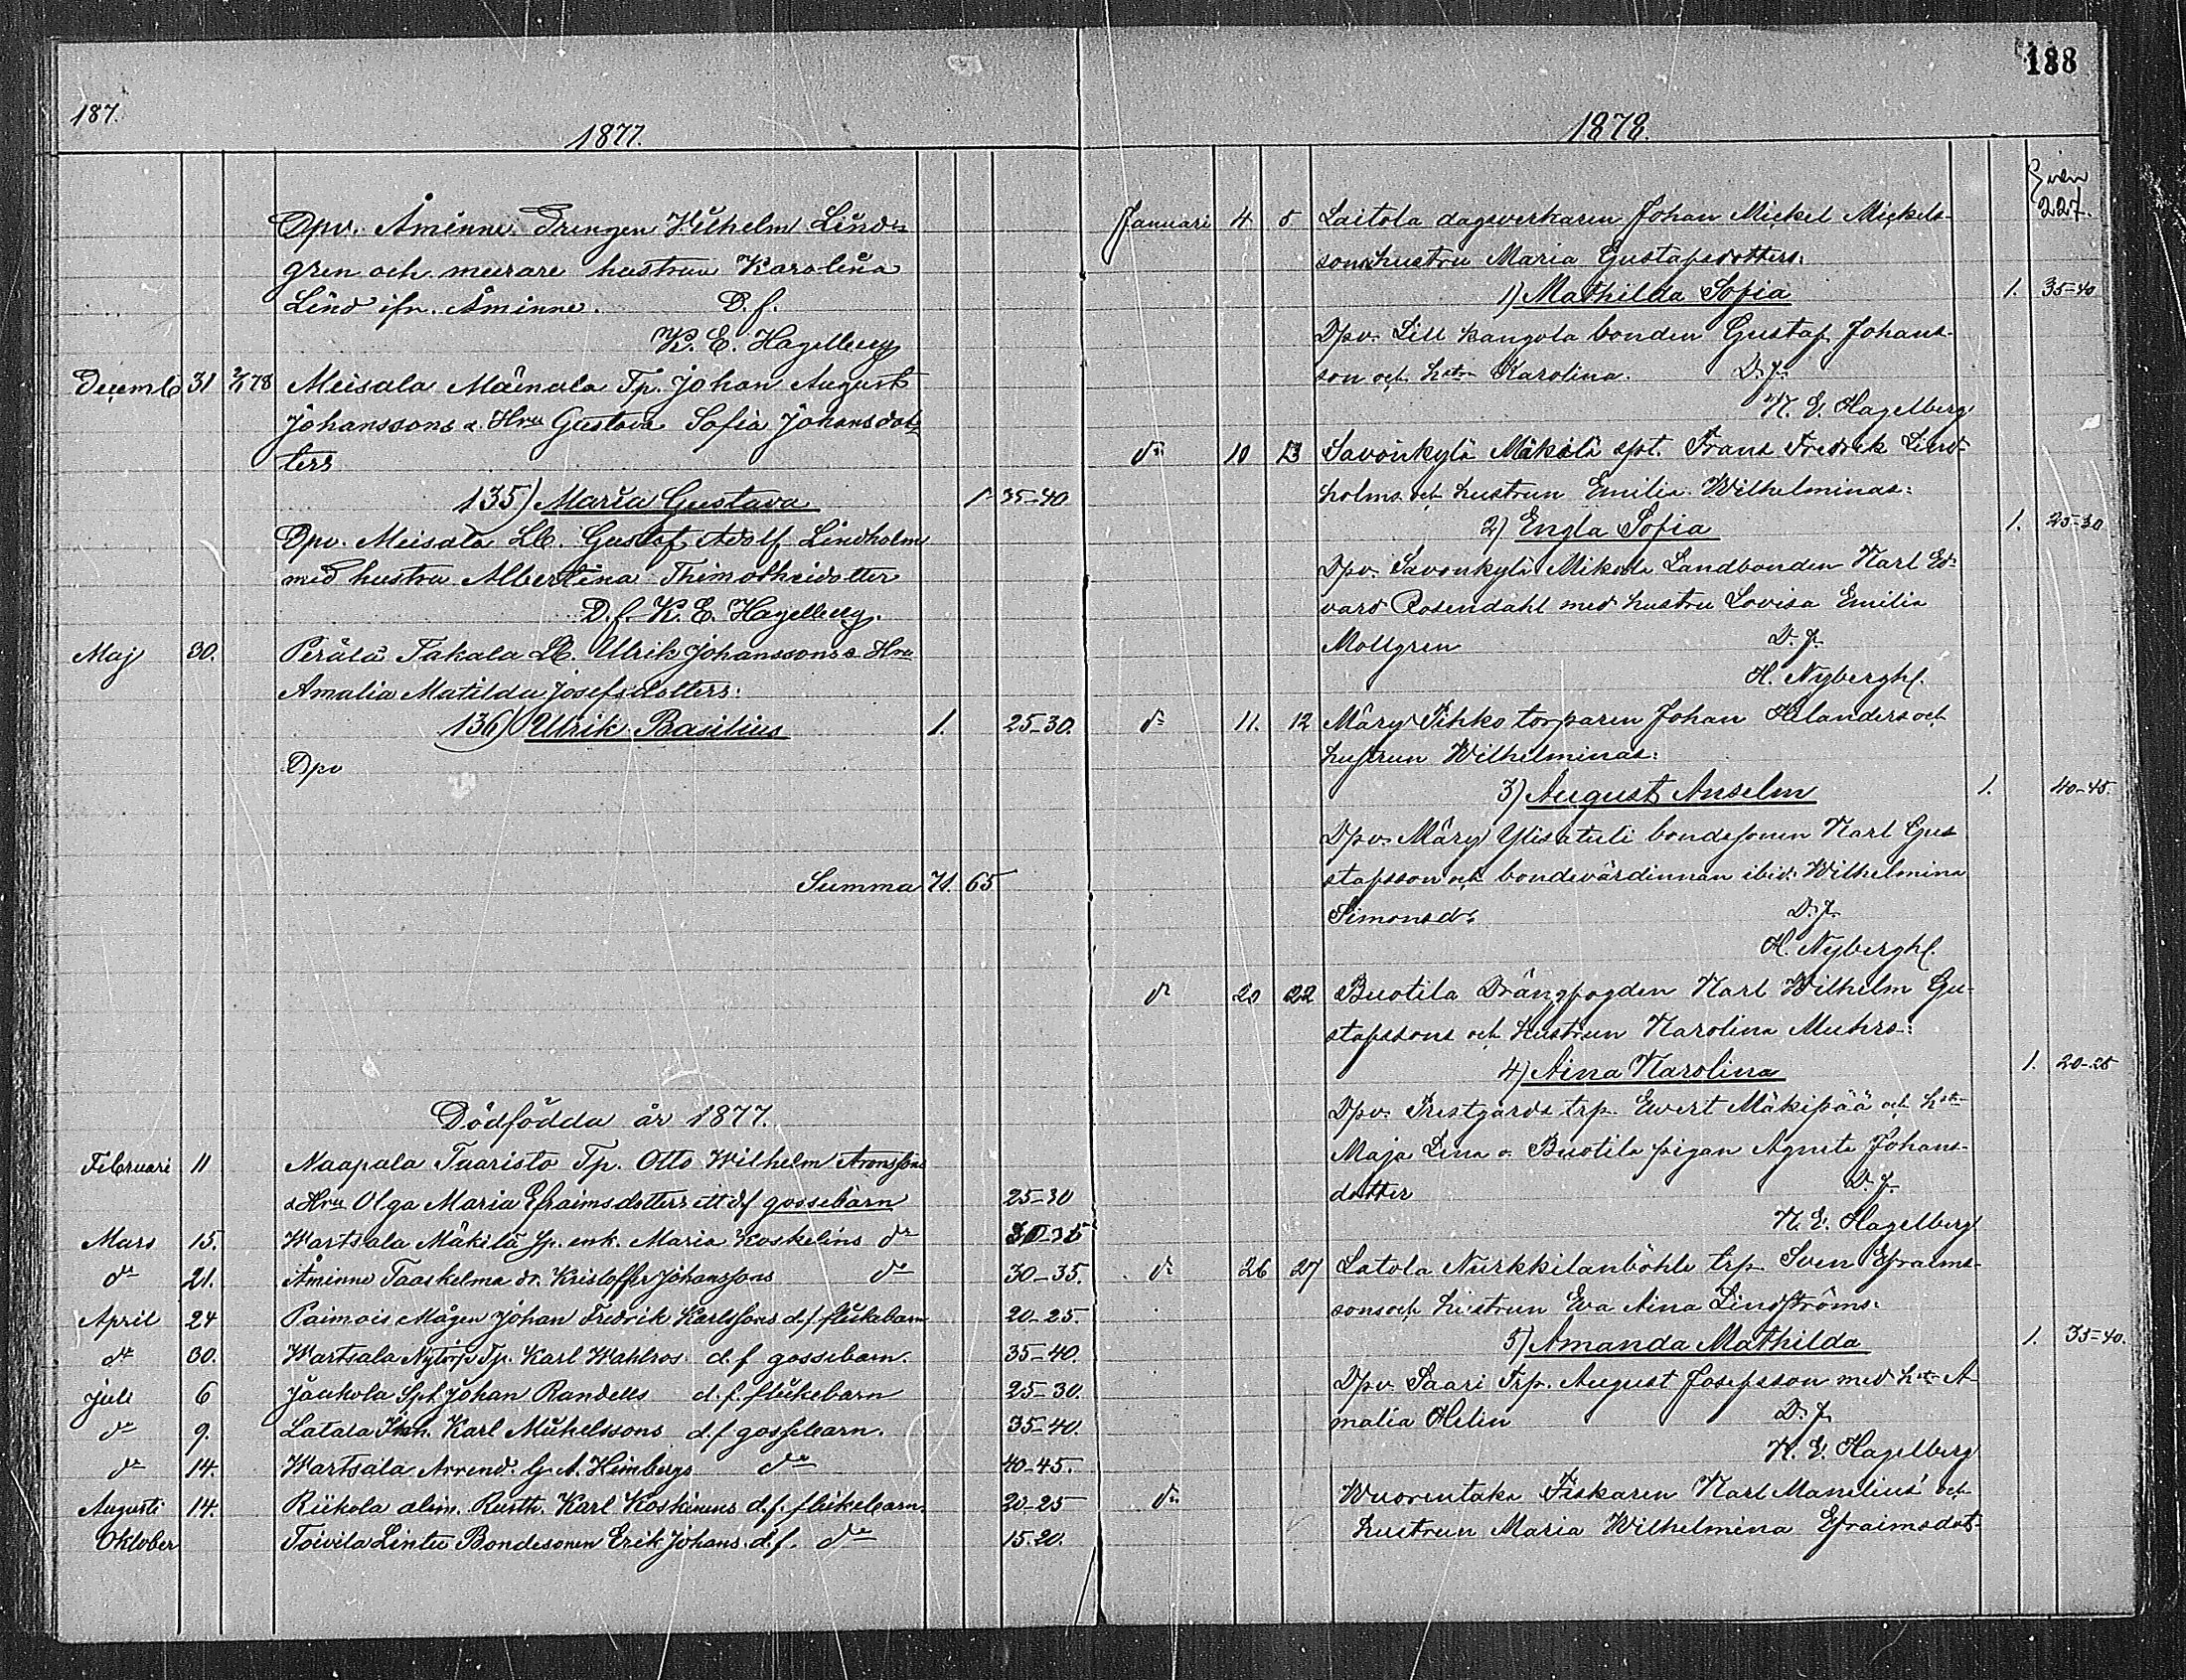 187.
1877.
Dpv. Åminne Drengen Wilhelm Lind-
gren och murare hustrun Karolina
Lind ifr. Åminne. D. f.
K. E. Hagelberg
Decemb 31 2/1 78 Meisala Mäinala Tp. Johan August
Johanssons & Hru Gustava Sofia Johansdot-
ters
135) Maria Gustava 1 35-40
Dpv. Meisala Lb. Gustaf Adolf Lindholm
med hustru Albertina Thimotheidotter
D. f. K. E. Hagelberg.
Maj 30. Perälä Takala Lb. Ulrik Johanssons & Hru
Amalia Matilda Josefsdotters:
136) Ulrik Basilius 1. 25-30.
Dpv
Summa 71. 65
Dödfödda år 1877.
Februari 11 Naapala Tuaristo Tp. Otto Wilhelm Aronssons
& Hru Olga Maria Efraimsdotters ett df gossebarn 25-30
Mars 15. Wartsala Mäkilä Sp. enk. Maria Koskelins do 30-35
do 21. Åminne Taaskelma dr. Kristoffer Johanssons do 30-35.
April 24 Paimois Mågen Johan Fredrik Karlssons d.f. flickebarn 20-25.
do 30. Wartsala Nytorp Tp. Karl Wahlros d. f gossebarn. 35-40.
Juli 6 Jaukola Spt Johan Randells d. f. flickebarn 25-30
do 9. Latala Inh. Karl Michelssons d. f gossebarn. 35-40.
do 14. Wartsala Arrend. G. A. Heimbergs do 40-45.
Augusti 14. Riikola alim. Rusth. Karl Koskinens d. f. flickebarn. 20-25
Oktober Toivila Lintu Bondesonen Erik Johans. d. f. do 15-20.
188
1878.
227.
Januari 4 5 Laitola dagsverkaren Johan Mickel Mickels-
sons hustru Maria Gustafsdotters:
1) Mathilda Sofia 1. 35-40
Dpv. Lill Kangola bonden Gustaf Johans-
son och hstr Karolina. D. f.
K. E. Hagelberg
do 10 13 Savonkylä Mäkilä spt. Frans Fredrik Lind-
holms och hustrun Emilia Wilhelminas:
2) Engla Sofia 1. 25-30
Dpv. Savonkylä Mikola Landbonden Karl Ed-
vard Rosendahl med hustru Lovisa Emilia
Mollgren D. f.
H. Nybergh.
do 11. 12 Märy Pihko torparen Johan Helanders och
hustrun Wilhelminas:
3) August Anselm 1. 40-45.
Dpv. Märy Ylisatuli bondesonen Karl Gus
stafsson och bondevärdinnan ibid. Wilhelmina
Simonsd: D. f.
H. Nybergh.
do 20 22 Buotila Drängfogden Karl Wilhelm Gu-
stafssons och hustrun Karolina Muhrs:
4) Aina Karolina 1. 20-25
Dpv. Prestgårds trp. Evert Mäkipää och hstr
Maja Lena o. Buotila pigan Agneta Johans-
dotter D. f.
K. E. Hagelberg
do 26 27 Latola Nurkkilanböhle trp. Sven Efraims-
sons och hustrun Eva Aina Lindströms:
5) Amanda Mathilda 1. 35-40.
Dpv. Saari Trp. August Josefsson med hstr A-
malia Helin D. f.
K. E. Hagelberg
do Wuorentaka Fiskaren Karl Manelius och
hustrun Maria Wilhelmina Efraimsdot-